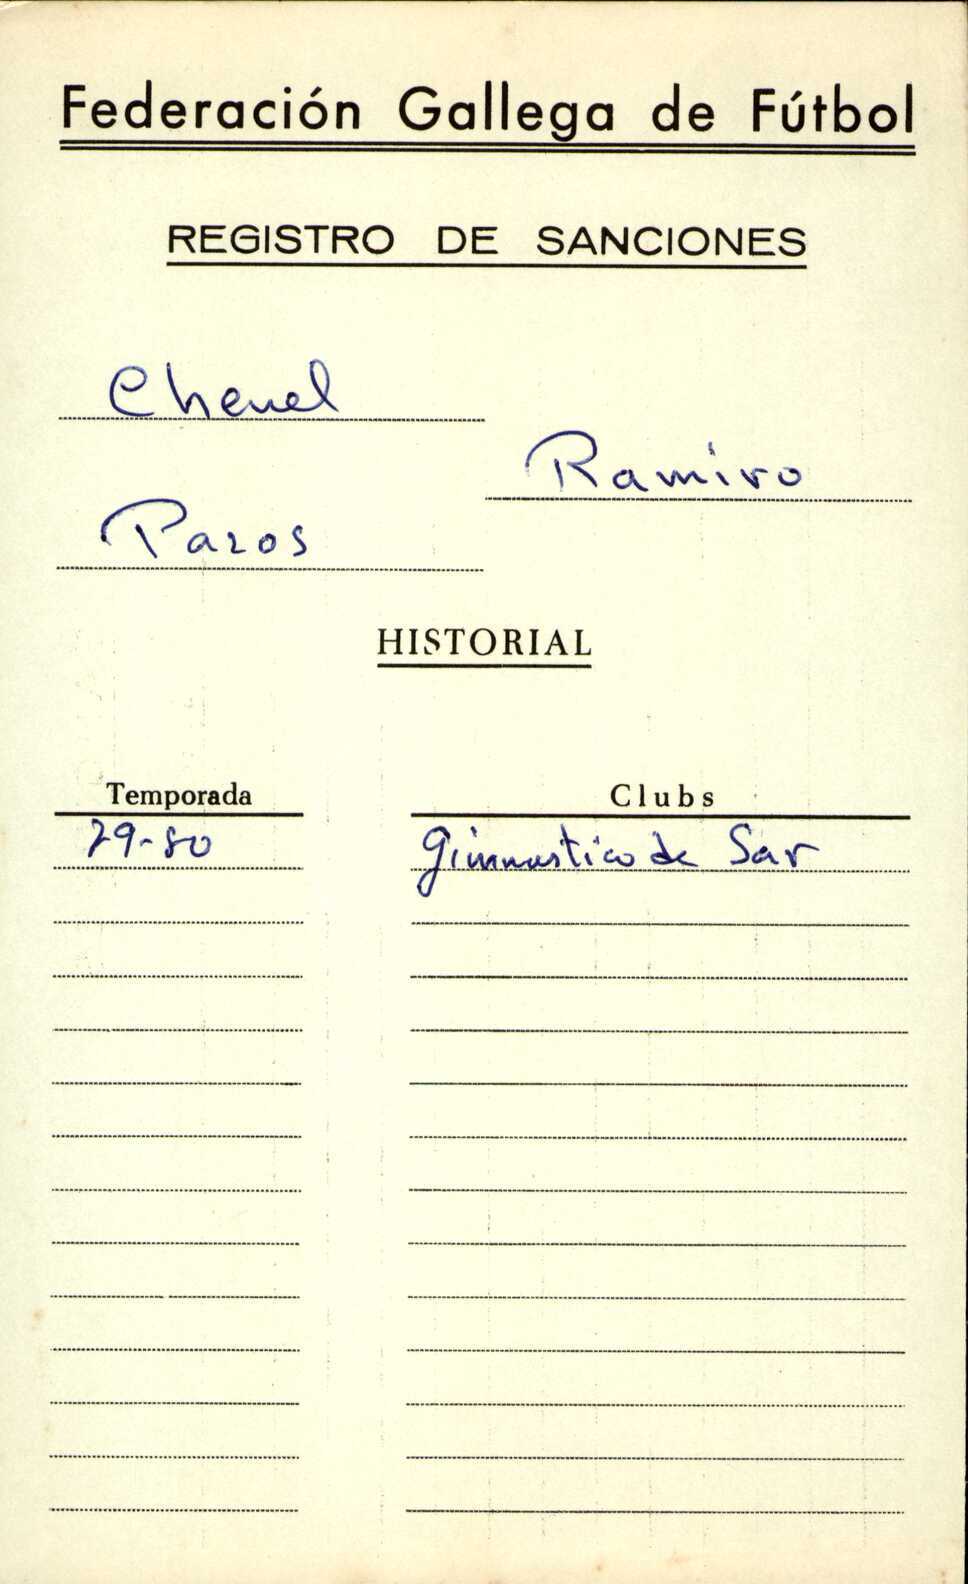 Federación Gallega de Fútbol
REGISTRO DE SANCIONES
Chenel
Ramiro
Pazos
HISTORIAL
Temporada Clubs
79-80 Gimnastico de Sar